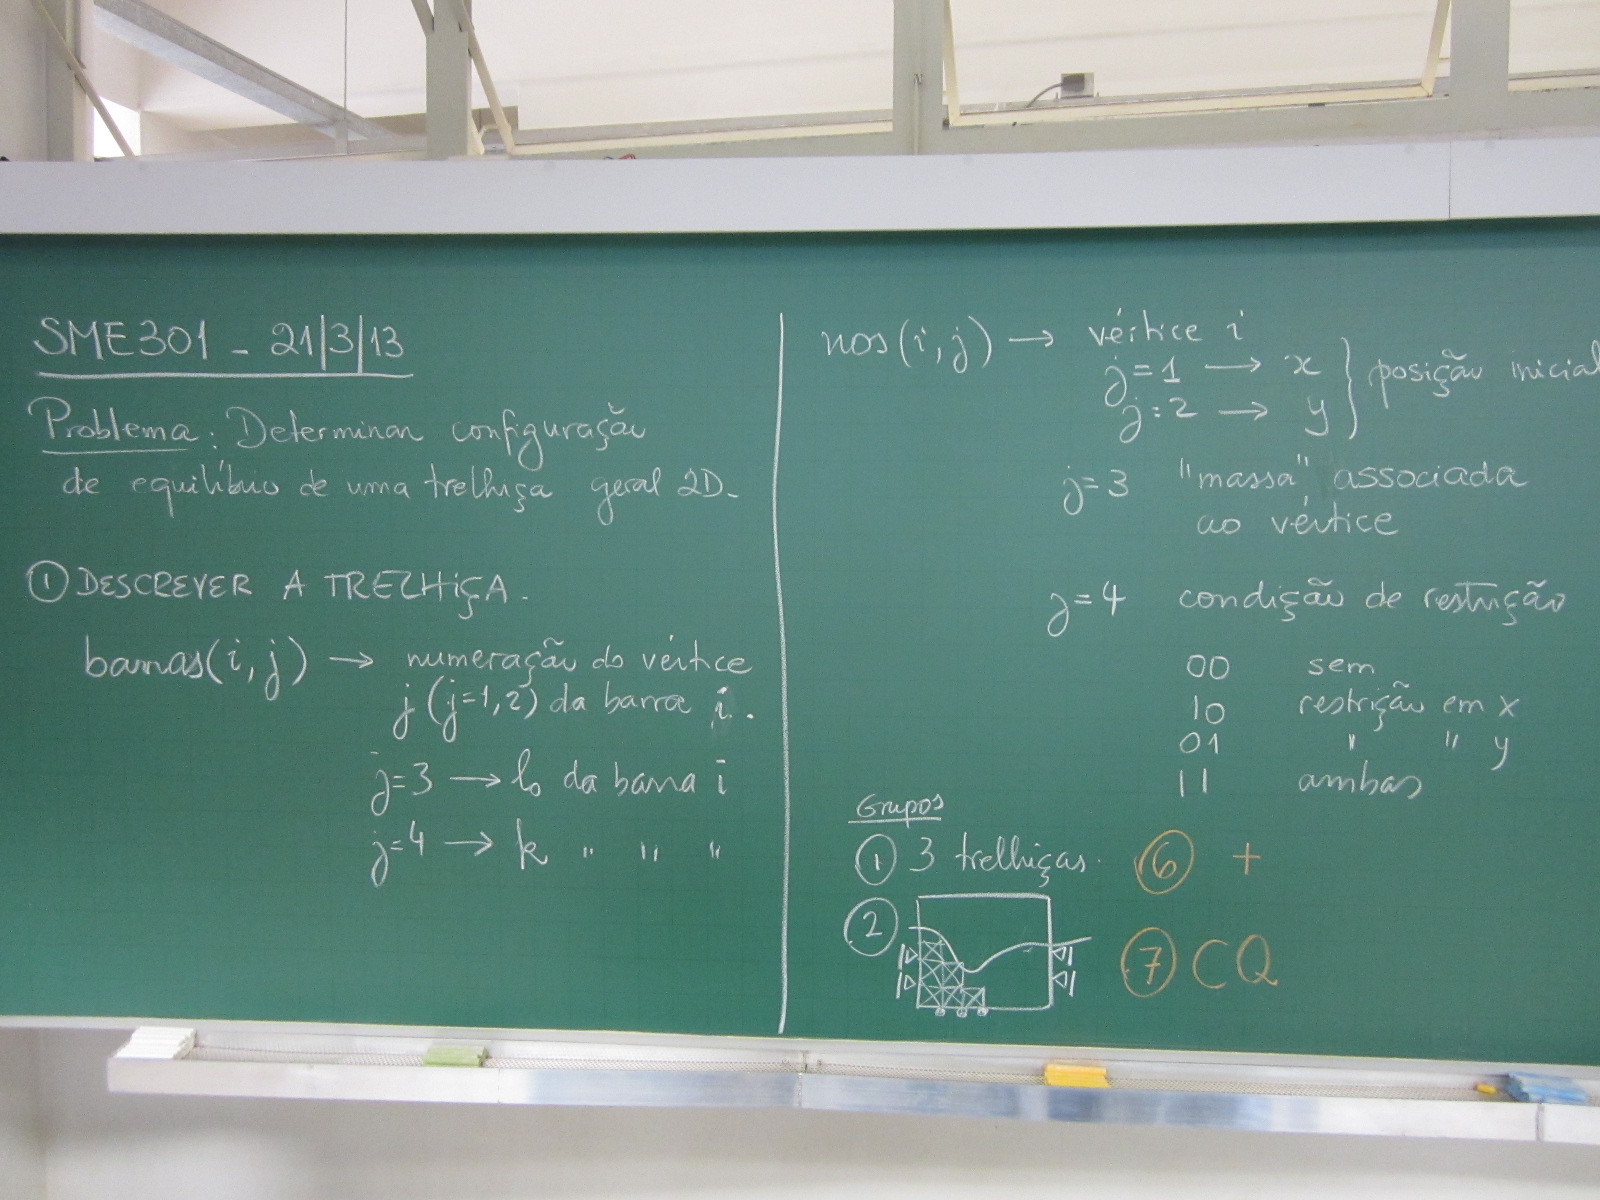 SME301 - 21/3/13
Problema: Determinar configuração
de equilíbrio de uma trelhiça geral 2D.
① DESCREVER A TRELHIÇA.
barras(i,j) → numeração do vértice
j (j=1,2) da barra i.
j=3 → lo da barra i
j=4 → k " " "
nos(i,j) → vértice i
j=1 → x } posição inicial
j=2 → y
j=3 "massa" associada
ao vértice
j=4 condição de restrição
00 sem
10 restrição em x
01 " " y
11 ambas
Grupos
① 3 trelhiças. ⑥ +
②
⑦ CQ